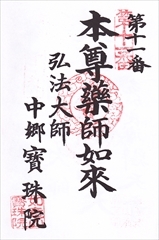 第十一番
本尊藥師如來
弘法大師
中郷寳珠院